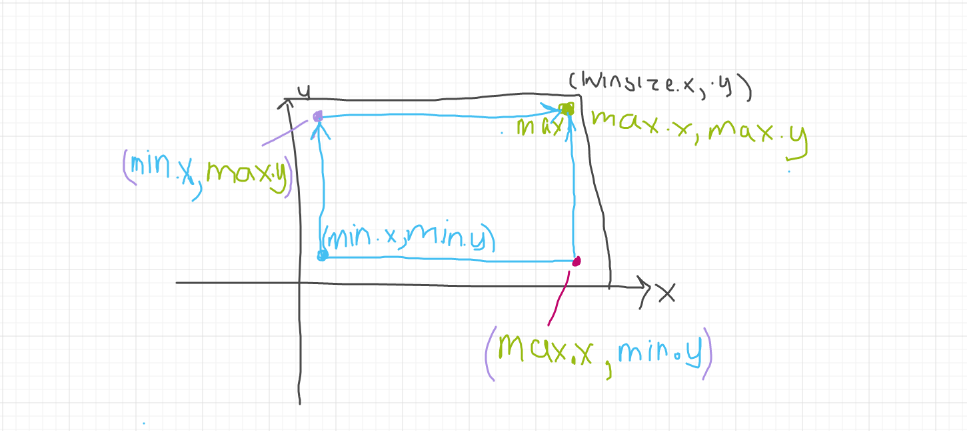 (Winsize.x, .y)
y
max
max.x, max.y
(min.x, max.y)
(min.x, min.y)
x
(max.x, min.y)